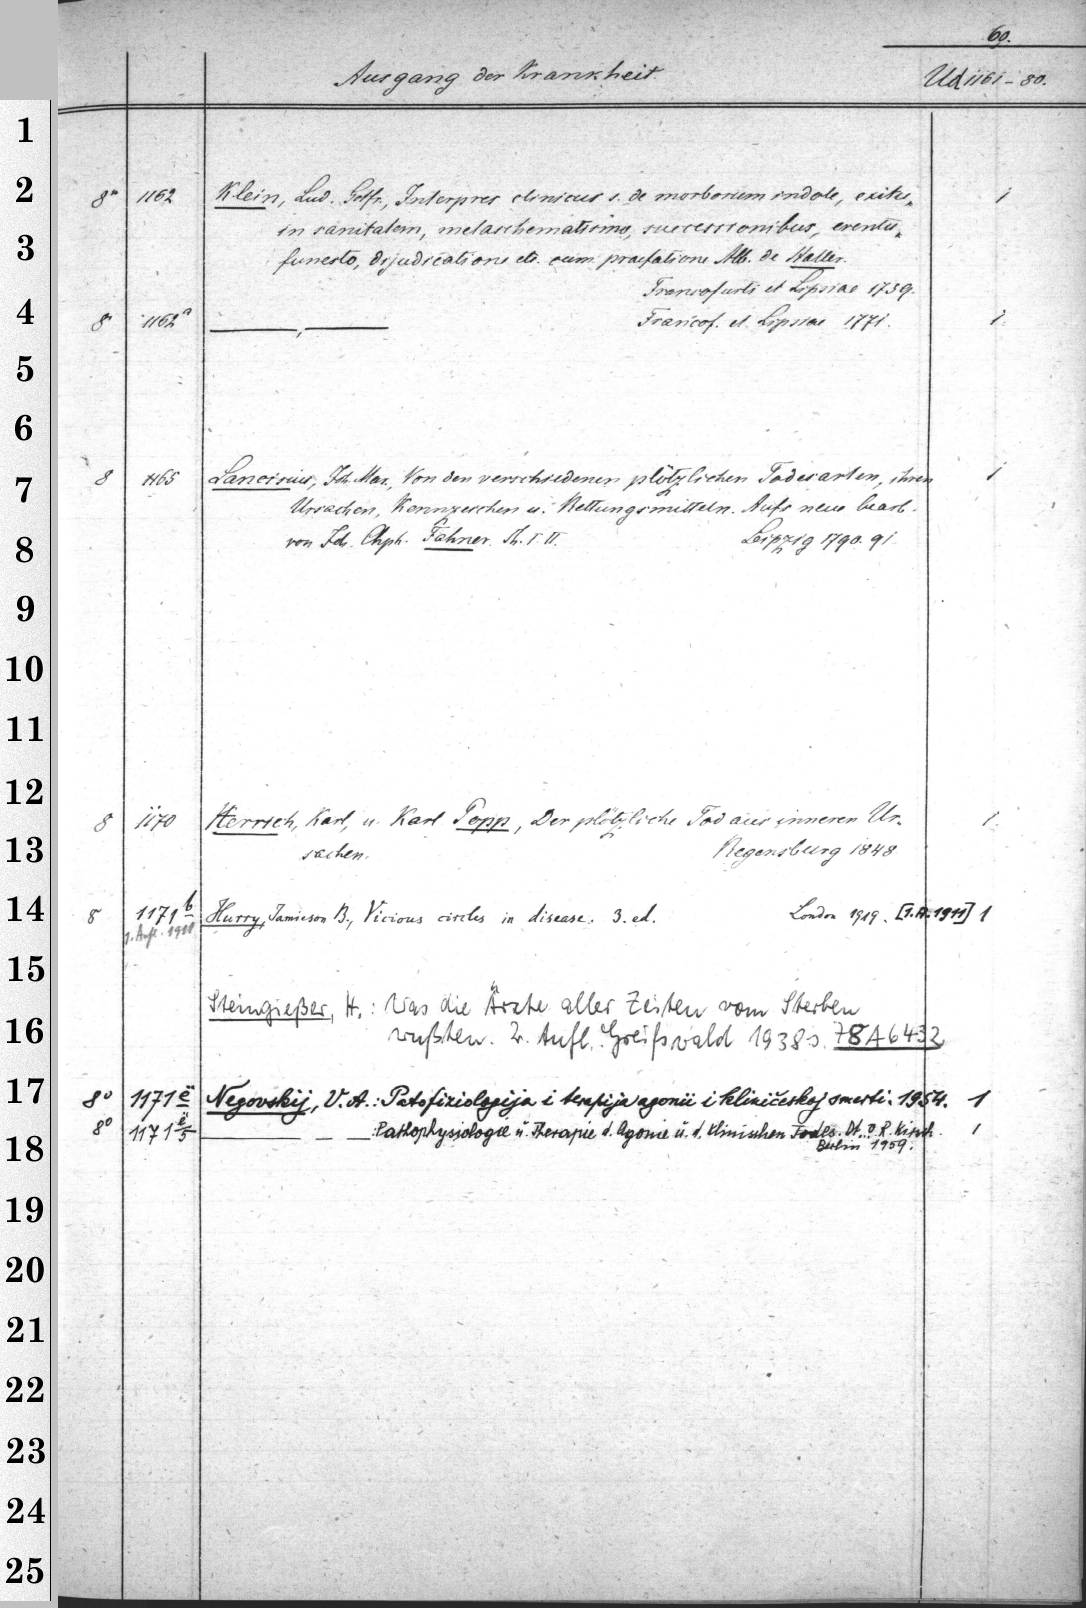 69.
Ausgang der Krankheit Ud 1161-80.
1
2
3
4
5
6
7
8
9
10
11
12
13
14
15
16
17
18
19
20
21
22
23
24
25
8° 1162 Klein, Lud. Gotfr., Interpres clinicus s. de morborum indole, exitu 1
in sanitatem, metaschematismo, successionibus, eventu
funesto, dijudicatione etc. cum praefatione Alb. de Haller.
Francofurti et Lipsiae 1739.
8° 1162ª ———, ——— Francof. et Lipsiae 1771. 1.
8 1165 Lancisius, Joh. Mar., Von den verschiedenen plötzlichen Todesarten, ihren 1
Ursachen, Kennzeichen u. Rettungsmitteln. Aufs neue bearb.
von Joh. Chph. Fahner. Th. I. II. Leipzig 1790. 91
8 1170 Herrich, Karl, u. Karl Popp, Der plötzliche Tod aus inneren Ur- 1.
sachen. Regensburg 1848
8 1171 b Hurry, Jamieson B., Vicious circles in disease. 3. ed. London 1919. [1.A. 1911] 1
1. Aufl. 1911
Steingießer, H.: Was die Ärzte aller Zeiten vom Sterben
wußten. 2. Aufl. Greifswald 1938 s. 78 A 6432
8° 1171 ë Negovskij, V. A.: Patofiziologija i terapija agonii i kliničeskoj smerti. 1954. 1
8° 1171 ë/5 ——— — — : Pathophysiologie u. Therapie d. Agonie u. d. klinischen Todes. Dt. v. R. Kirsch. 1
Berlin 1959.